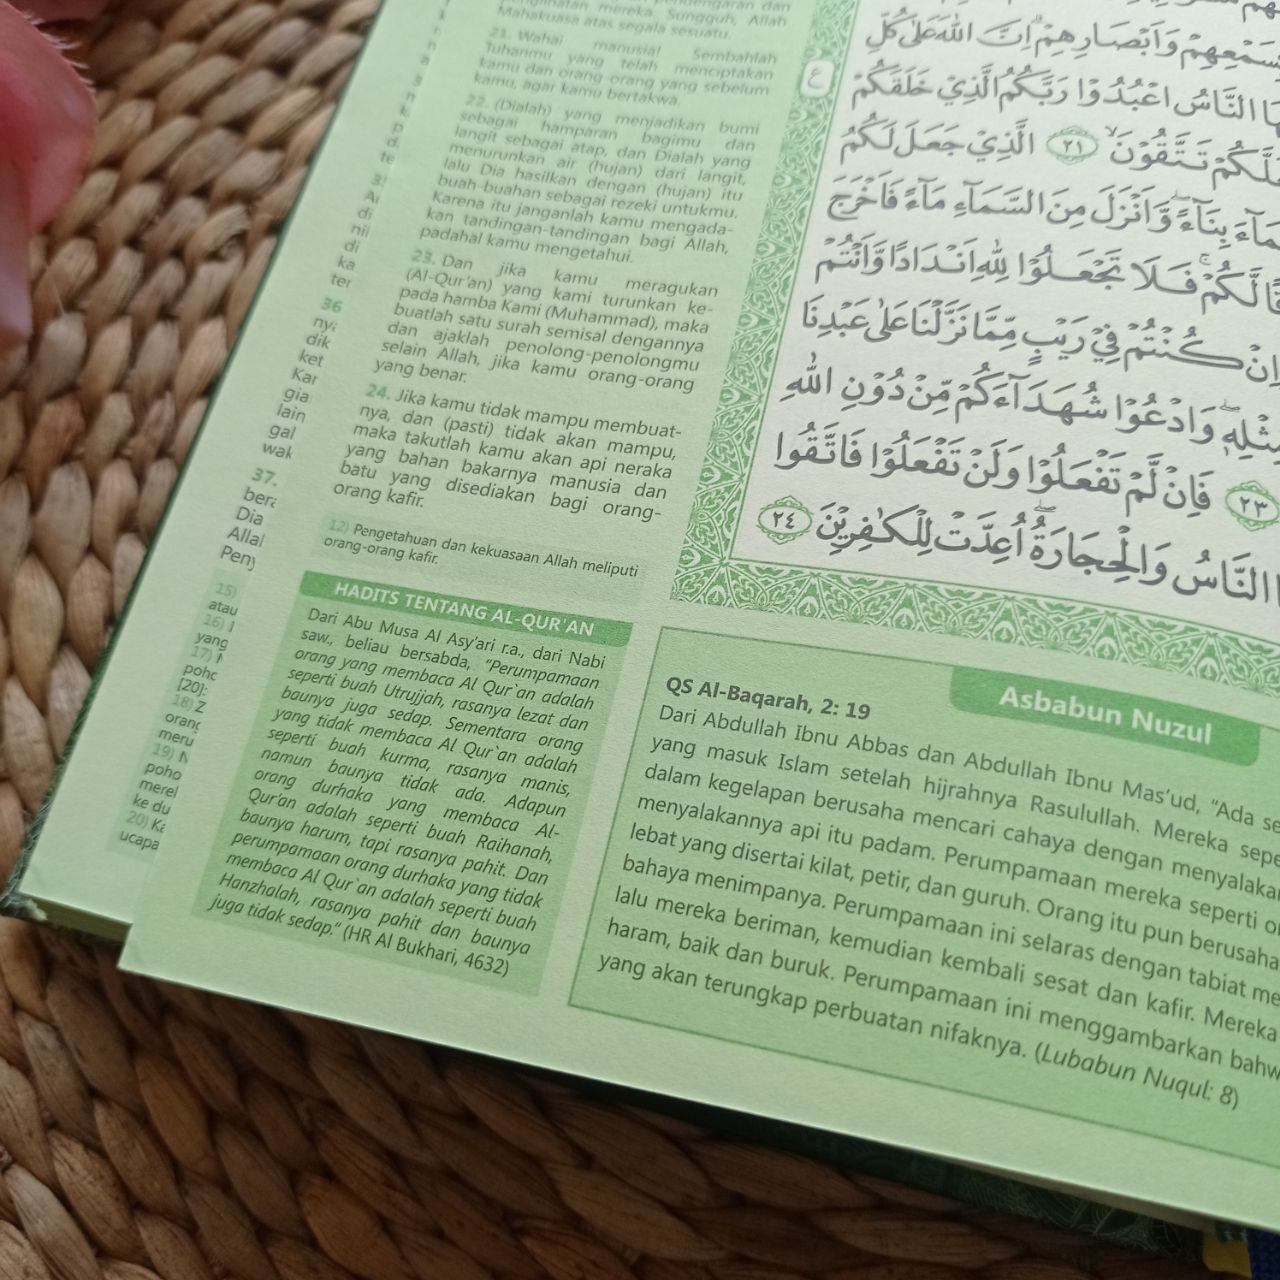 penglihatan mereka. Sungguh, Allah
Mahakuasa atas segala sesuatu.
21. Wahai manusia! Sembahlah
Tuhanmu yang telah menciptakan
kamu dan orang-orang yang sebelum
kamu, agar kamu bertakwa.
22. (Dialah) yang menjadikan bumi
sebagai hamparan bagimu dan
langit sebagai atap, dan Dialah yang
menurunkan air (hujan) dari langit,
lalu Dia hasilkan dengan (hujan) itu
buah-buahan sebagai rezeki untukmu.
Karena itu janganlah kamu mengada-
kan tandingan-tandingan bagi Allah,
padahal kamu mengetahui.
23. Dan jika kamu meragukan
(Al-Qur'an) yang kami turunkan ke-
pada hamba Kami (Muhammad), maka
buatlah satu surah semisal dengannya
dan ajaklah penolong-penolongmu
selain Allah, jika kamu orang-orang
yang benar.
24. Jika kamu tidak mampu membuat-
nya, dan (pasti) tidak akan mampu,
maka takutlah kamu akan api neraka
yang bahan bakarnya manusia dan
batu yang disediakan bagi orang-
orang kafir.
12) Pengetahuan dan kekuasaan Allah meliputi
orang-orang kafir.
HADITS TENTANG AL-QUR'AN
Dari Abu Musa Al Asy'ari r.a., dari Nabi
saw., beliau bersabda, "Perumpamaan
orang yang membaca Al Qur`an adalah
seperti buah Utrujjah, rasanya lezat dan
baunya juga sedap. Sementara orang
yang tidak membaca Al Qur`an adalah
seperti buah kurma, rasanya manis,
namun baunya tidak ada. Adapun
orang durhaka yang membaca Al-
Qur'an adalah seperti buah Raihanah,
baunya harum, tapi rasanya pahit. Dan
perumpamaan orang durhaka yang tidak
membaca Al Qur`an adalah seperti buah
Hanzhalah, rasanya pahit dan baunya
juga tidak sedap." (HR Al Bukhari, 4632)
ع
وَاَبْصَارِهِمْ ۗ اِنَّ اللّٰهَ عَلٰى كُلِّ
النَّاسُ اعْبُدُوْا رَبَّكُمُ الَّذِيْ خَلَقَكُمْ
تَتَّقُوْنَۙ ٢١ الَّذِيْ جَعَلَ لَكُمُ
بِنَاۤءً ۖوَّاَنْزَلَ مِنَ السَّمَاۤءِ مَاۤءً فَاَخْرَجَ
لَّكُمْ ۚ فَلَا تَجْعَلُوْا لِلّٰهِ اَنْدَادًا وَّاَنْتُمْ
كُنْتُمْ فِيْ رَيْبٍ مِّمَّا نَزَّلْنَا عَلٰى عَبْدِنَا
وَادْعُوْا شُهَدَاۤءَكُمْ مِّنْ دُوْنِ اللّٰهِ
٢٣ فَاِنْ لَّمْ تَفْعَلُوْا وَلَنْ تَفْعَلُوْا فَاتَّقُوا
النَّاسُ وَالْحِجَارَةُ ۖ اُعِدَّتْ لِلْكٰفِرِيْنَ ٢٤
Asbabun Nuzul
QS Al-Baqarah, 2: 19
Dari Abdullah Ibnu Abbas dan Abdullah Ibnu Mas'ud, "Ada
yang masuk Islam setelah hijrahnya Rasulullah. Mereka
dalam kegelapan berusaha mencari cahaya dengan
menyalakannya api itu padam. Perumpamaan mereka seperti
lebat yang disertai kilat, petir, dan guruh. Orang itu pun berusaha
bahaya menimpanya. Perumpamaan ini selaras dengan tabiat
lalu mereka beriman, kemudian kembali sesat dan kafir. Mereka
haram, baik dan buruk. Perumpamaan ini menggambarkan
yang akan terungkap perbuatan nifaknya. (Lubabun Nuqul: 8)
36
37.
15)
atau
16)
yang
17)
[20]:
18)
19)
20)